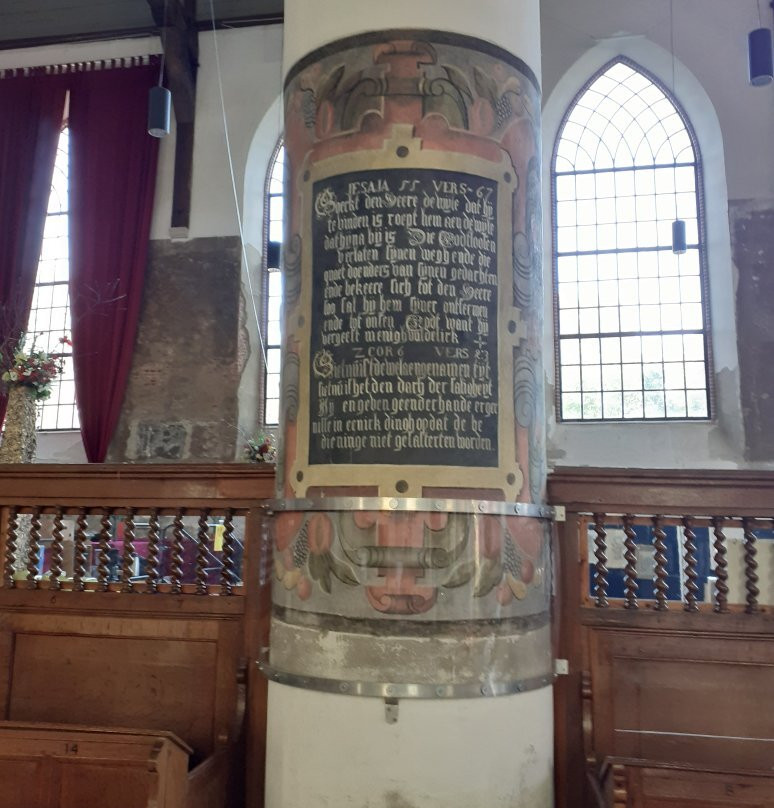 JESAJA 55 VERS 67
Soeckt den Heere de wyle dat hy
te vinden is roept hem aen de wyle
dat hy na by is Die Godtloosen
verlaten synen wegh ende die
quaet doenders van synen gedachten
ende bekeere sich tot den Heere
soo sal hy hem over ontfermen
ende tot onsen Godt want by
vergeeft menighvuldelick
2 COR 6 VERS 23
Siet nu is de wel aengenamen tyt
siet nu is het den dach der saligheyt
Wy en geven geenderhande erger
nisse in eenick dingh op dat de be
dieninge niet gelastert en worden
14